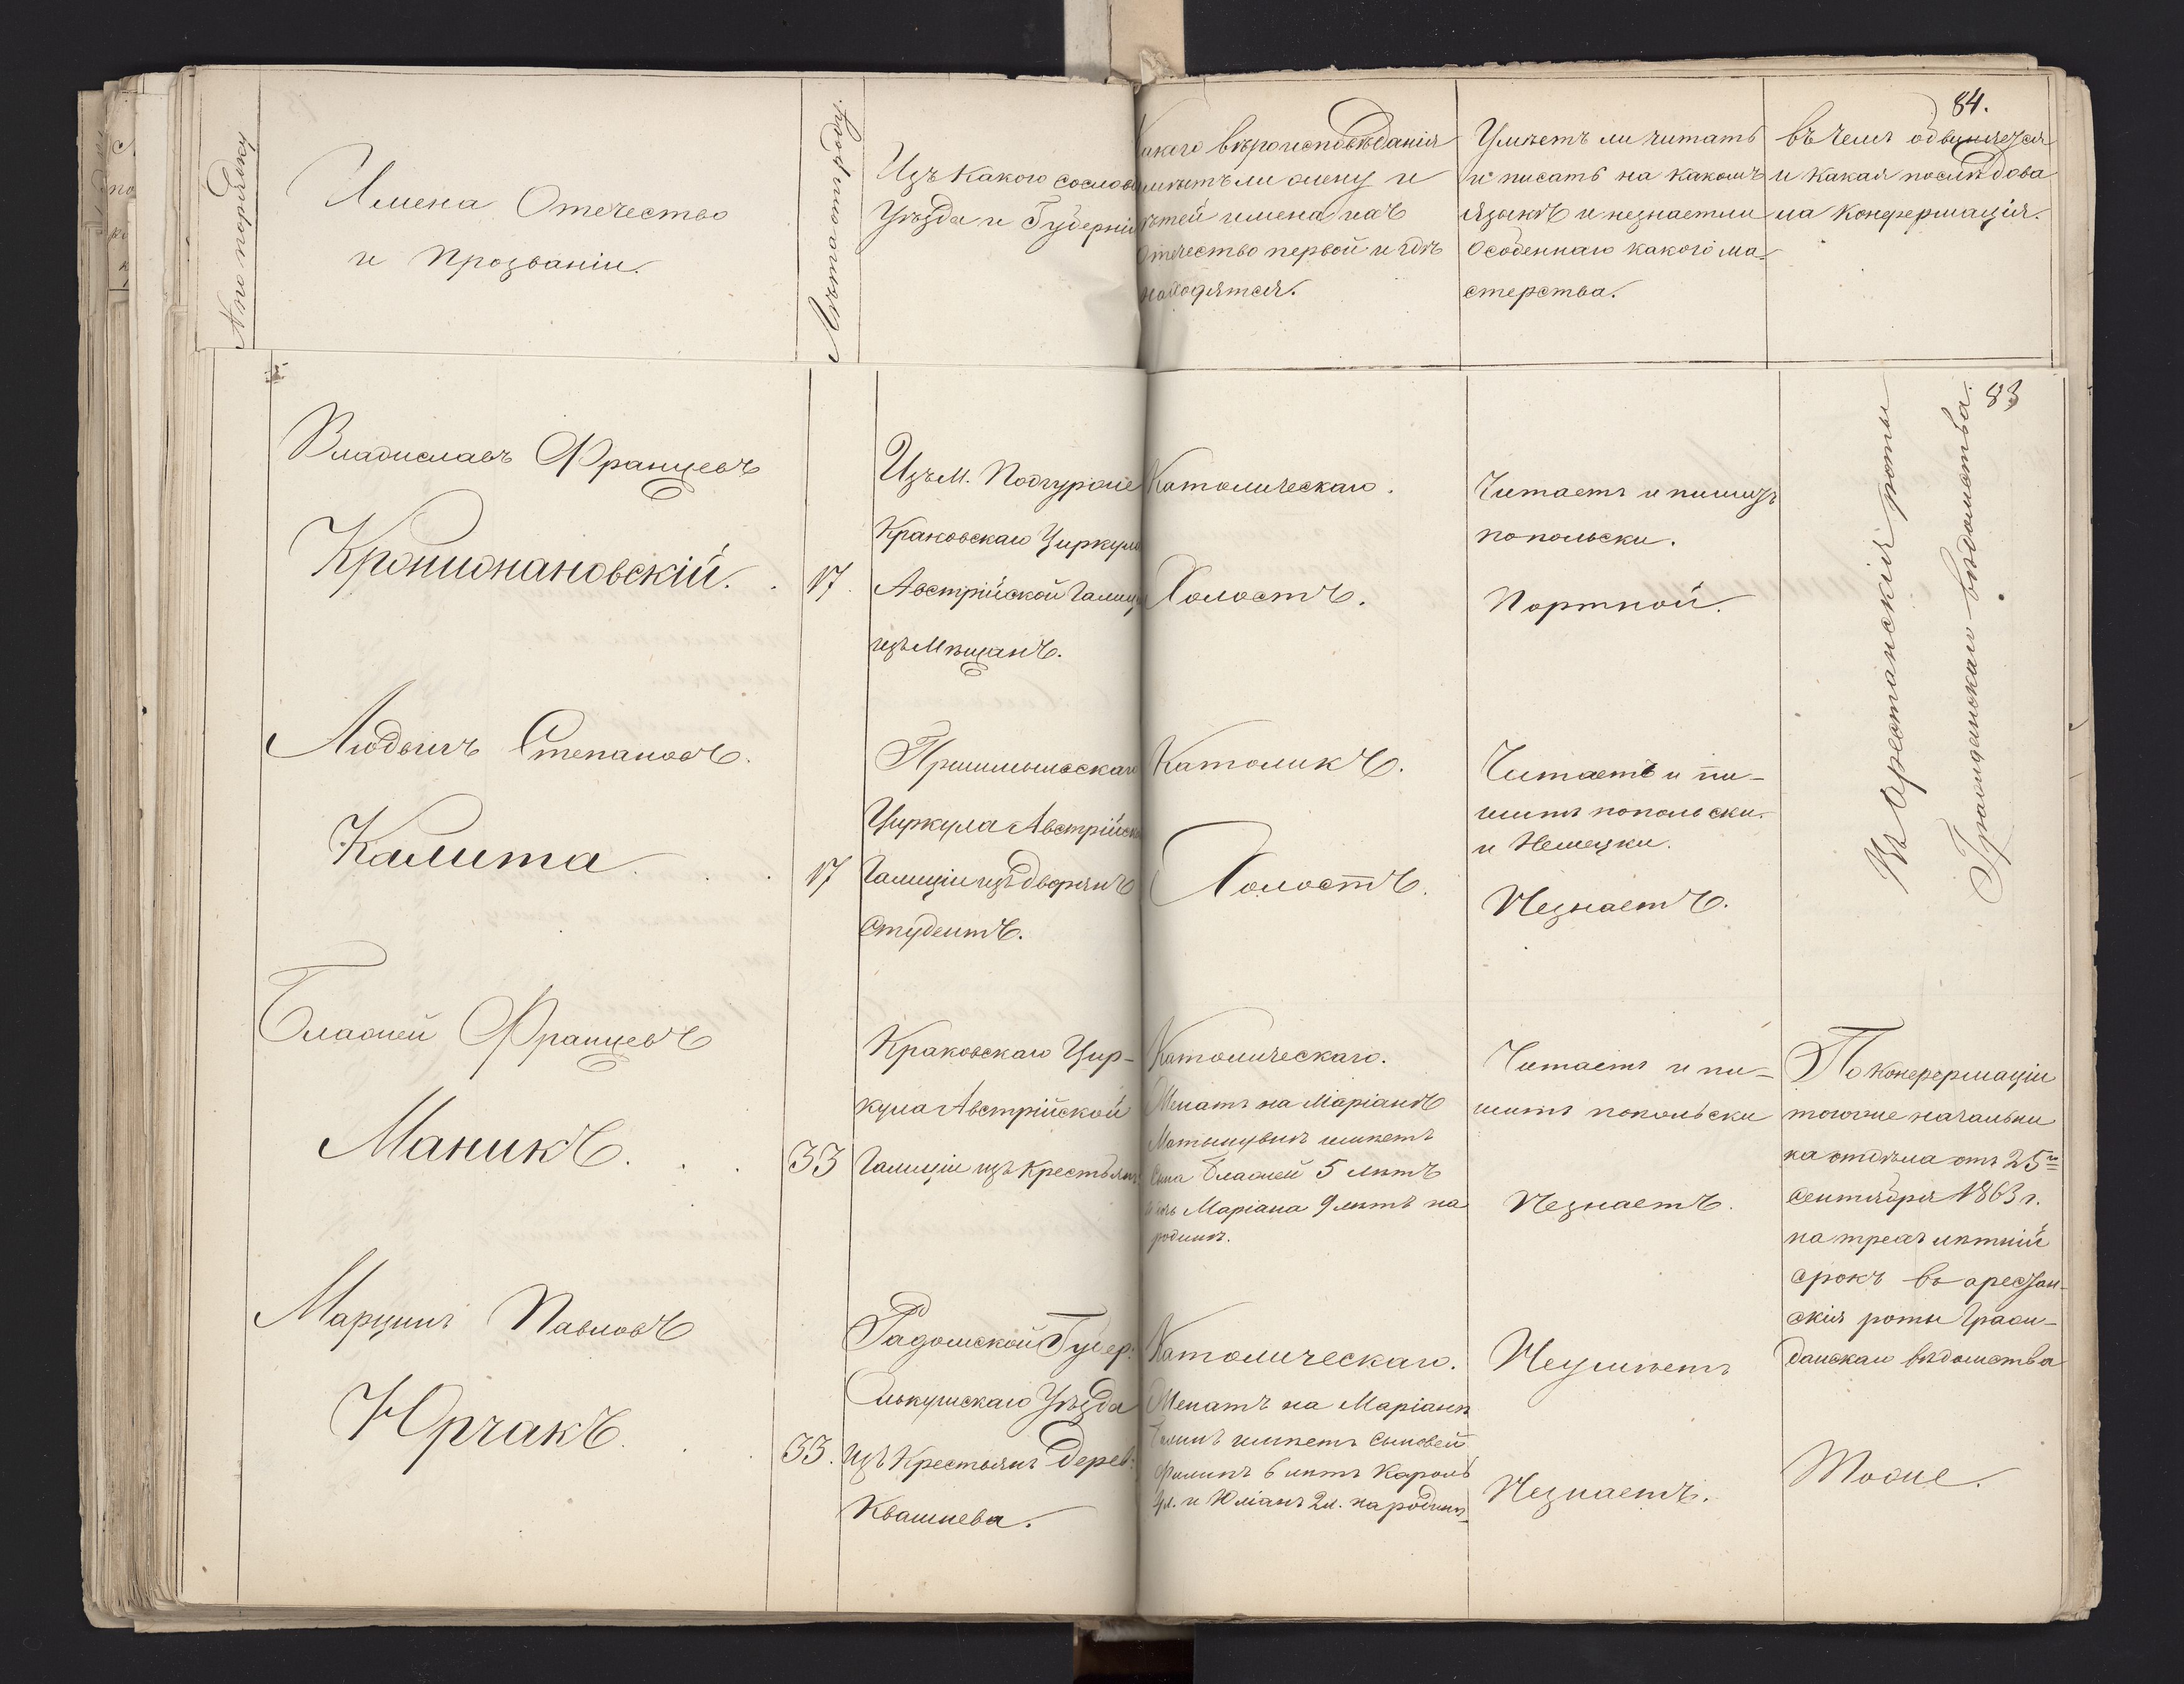 84.
№ по порядку
Имена Отечество
и Прозваніи.
Лѣта отъ роду.
Изъ какого сослов
Уѣзда и Губерніи
какого вѣроисповѣданія
имѣетъ ли жену и
дѣтей имена ихъ
Отечество первой и гдѣ
находятся.
Умѣетъ ли читать
и писать на какомъ
языкѣ и незнаетли
особеннаго какого ма-
стерства.
въ чемъ обвиняется
и какая послѣдова
ла конфермація.
83
Владиславъ Францевъ
17.
Изъ м. Подгурже
Краковскаго Циркула
Австрійской Галиц
изъ Мѣщанъ.
Католическаго.
Холостъ.
Читаетъ и пишетъ
попольски.
Портной.
Въ Арестанскія роты
Гражданскаго вѣдомства.
Людвигъ Степановъ.
Калита
17
Пршимысскаго
Циркула Австрійско
Галиціи изъ дворянъ
Студентъ.
Католикъ.
Холостъ.
Читаетъ и пи-
шитъ попольски.
и Немецки.
Незнаетъ.
Блажей Францевъ
Маникъ.
33
Краковскаго Цир-
кула Австрійской
Галиціи изъ крестьянъ
Католическаго.
Женатъ на Маріанѣ
имѣетъ
сына Блажей 5 лѣтъ
и дочь Маріана 9 лѣтъ на
родинѣ.
Читаетъ и пи-
шитъ попольски
Незнаетъ.
По конфермаціи
тогоже начальни
ка отдѣла отъ 25го
Сентября 1863 г.
на трехъ лѣтній
срокъ въ арестан-
скія роты Граж-
данскаго вѣдомства
Марцинъ Павловъ
Юрчакъ.
33.
Радомской Губер:
Олькушскаго Уѣзда
изъ Крестьянъ Дерев:
Квашнева.
Католическаго.
Женатъ на Маріанѣ
имѣетъ сыновей
Филипъ 6 лѣтъ Кароль
4 л. и Юліанъ 2 л. на родинѣ
Неумѣетъ
Незнаетъ.
Тоже.